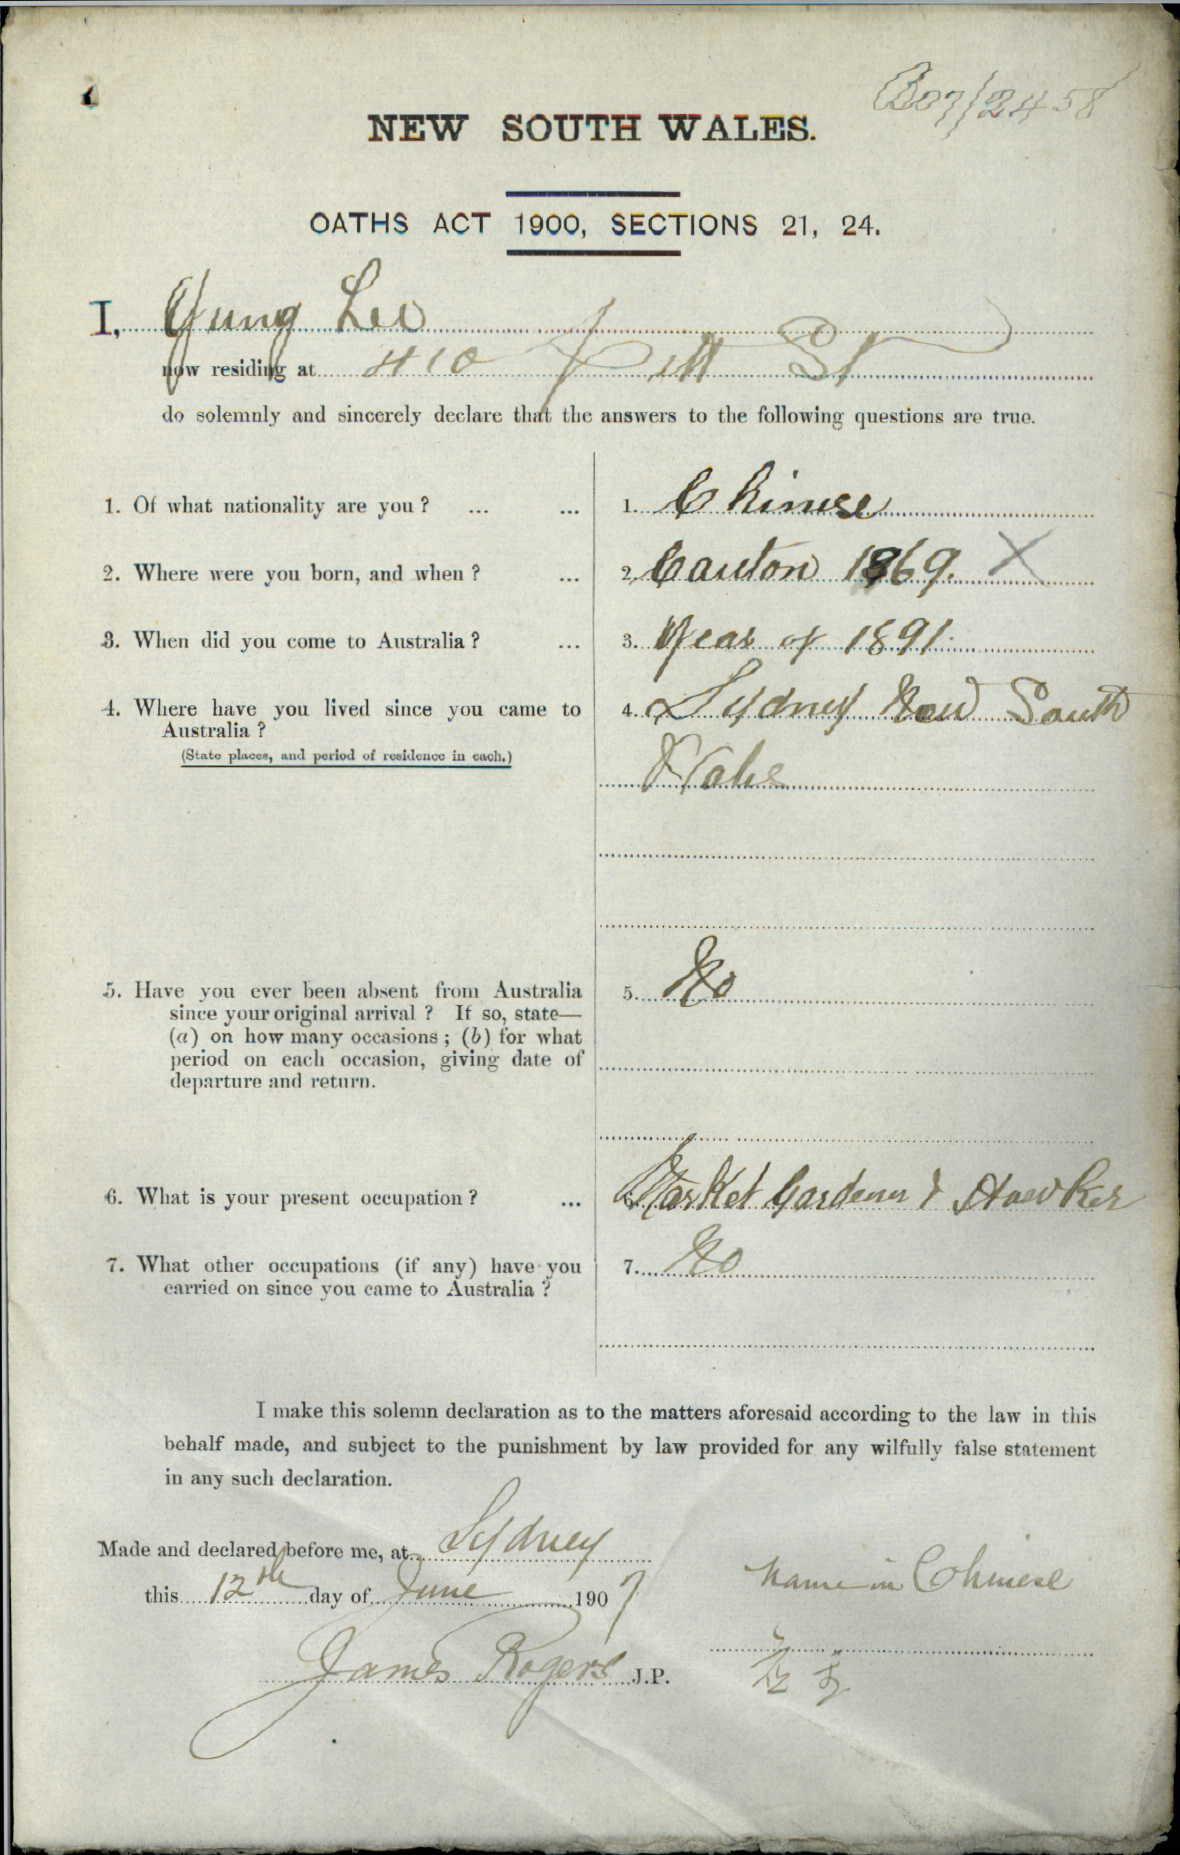 B07/2458
NEW SOUTH WALES.
OATHS ACT 1900, SECTIONS 21, 24.
I, Yung Lee
now residing at 410 Pitt St
do solemnly and sincerely declare that the answers to the following questions are true.
1. Of what nationality are you? ... ... 1. Chinese
2. Where were you born, and when? ... 2. Canton 1869. X
3. When did you come to Australia? ... 3. Year of 1891.
4. Where have you lived since you came to 4. Sydney New South
Australia?
(State places, and period of residence in each.)
Wales
5. Have you ever been absent from Australia 5. No
since your original arrival? If so, state—
(a) on how many occasions; (b) for what
period on each occasion, giving date of
departure and return.
6. What is your present occupation? ... 6. Market Gardener & Hawker
7. What other occupations (if any) have you 7. No
carried on since you came to Australia?
I make this solemn declaration as to the matters aforesaid according to the law in this
behalf made, and subject to the punishment by law provided for any wilfully false statement
in any such declaration.
Made and declared before me, at Sydney
this 12th day of June 1907
Name in Chinese
James Rogers J.P.